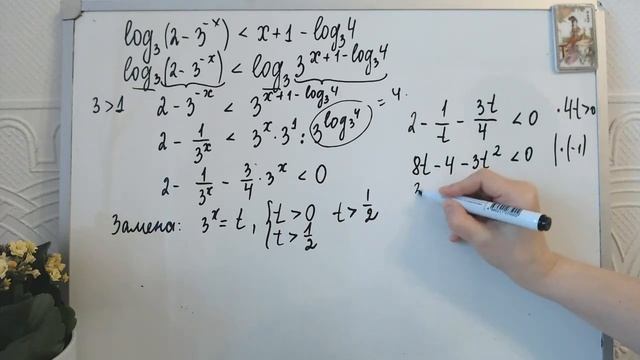 log₃(2 - 3⁻ˣ) < x + 1 - log₃4
log₃(2 - 3⁻ˣ) < log₃ 3^(x + 1 - log₃4)
3 > 1 2 - 3⁻ˣ < 3^(x + 1 - log₃4)
2 - 1/3ˣ < 3ˣ · 3¹ : 3^(log₃4) = 4
2 - 1/3ˣ - 3/4 · 3ˣ < 0
Замена: 3ˣ = t, { t > 0 t > 1/2
t > 1/2
2 - 1/t - 3t/4 < 0 · 4t > 0
8t - 4 - 3t² < 0 | · (-1)
3